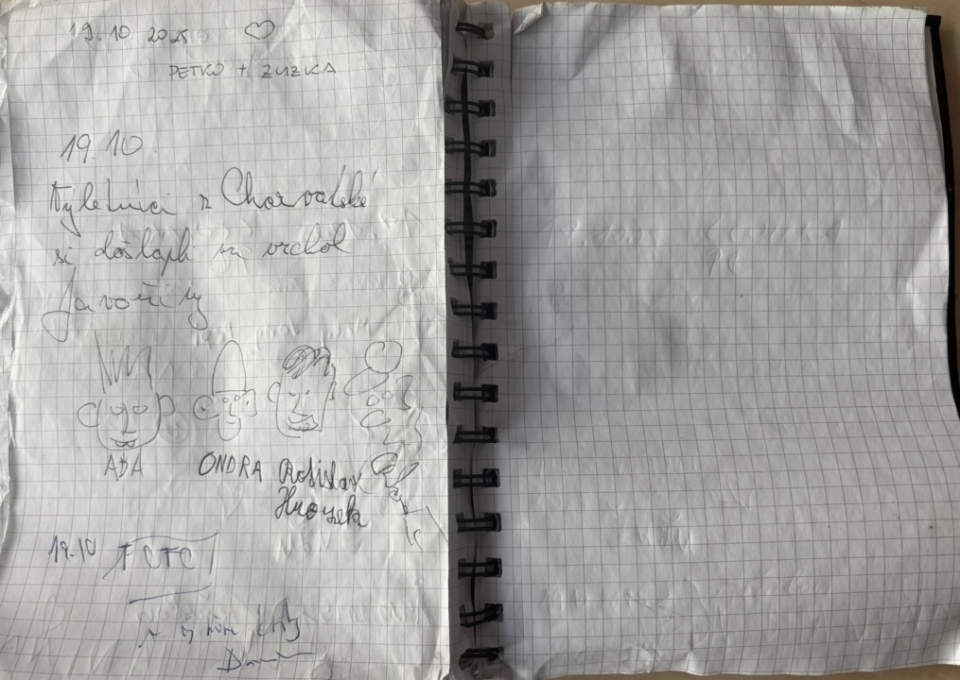 19.10 2025
PETKO + ZUZKA
19.10.
Výletníci z Chorvatské
si došlápli na vrchol
Javořiny
ADA ONDRA Rostislav
19.10